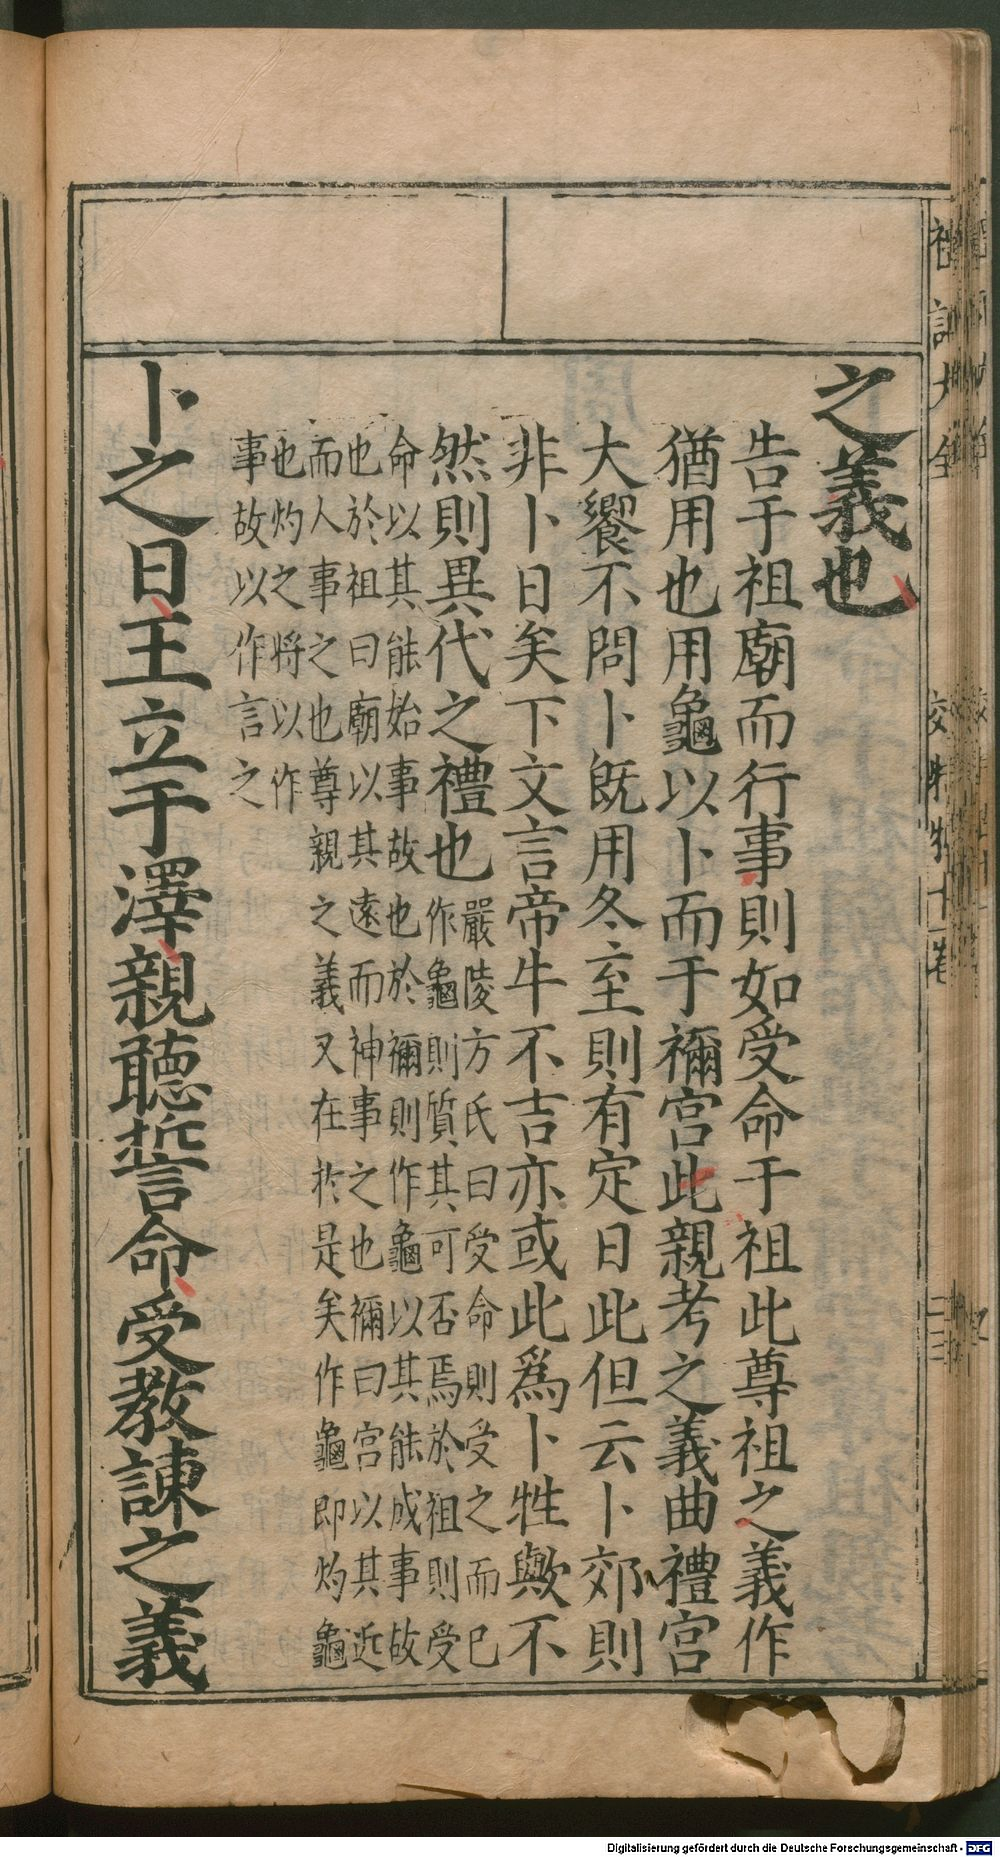 之義也
告于祖廟而行事則如受命于祖此尊祖之義作
猶用也用龜以卜而于禰宮此親考之義曲禮宮
大饗不問卜既用冬至則有定日此但云卜郊則
非卜日矣下文言帝牛不吉亦或此為卜牲歟不
然則異代之禮也嚴陵方氏曰受命則受之而已
作龜則質其可否焉於祖則受
命以其能始事故也於禰則作龜以其能成事故
也於祖曰廟以其遠而神事之也禰曰宮以其近
而人事之也尊親之義又在於是矣作龜即灼龜
也灼之將以作
事故以作言之
卜之日王立于澤親聽誓命受教諫之義
Digitalisierung gefördert durch die Deutsche Forschungsgemeinschaft - DFG